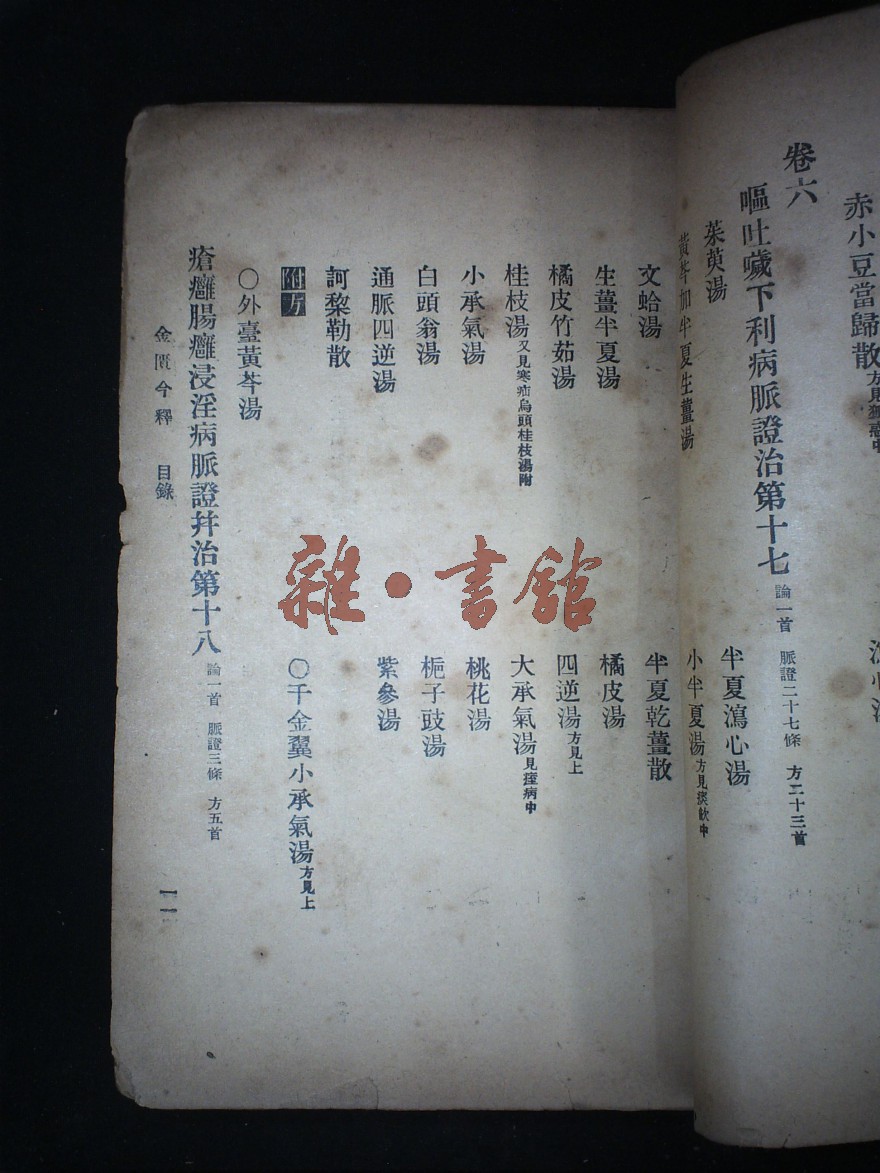 赤小豆當歸散
卷六
嘔吐噦下利病脈證治第十七 論一首 脈證二十七條 方二十三首
茱萸湯
半夏瀉心湯
黃芩加半夏生薑湯
小半夏湯方見痰飲中
文蛤湯
半夏乾薑散
生薑半夏湯
橘皮湯
橘皮竹茹湯
四逆湯方見上
桂枝湯又見寒疝烏頭桂枝湯附
大承氣湯見痙病中
小承氣湯
桃花湯
白頭翁湯
梔子豉湯
通脈四逆湯
紫參湯
訶黎勒散
附方
〇千金翼小承氣湯方見上
〇外臺黃芩湯
瘡癰腸癰浸淫病脈證幷治第十八 論一首 脈證三條 方五首
金匱今釋 目錄
雜·書館